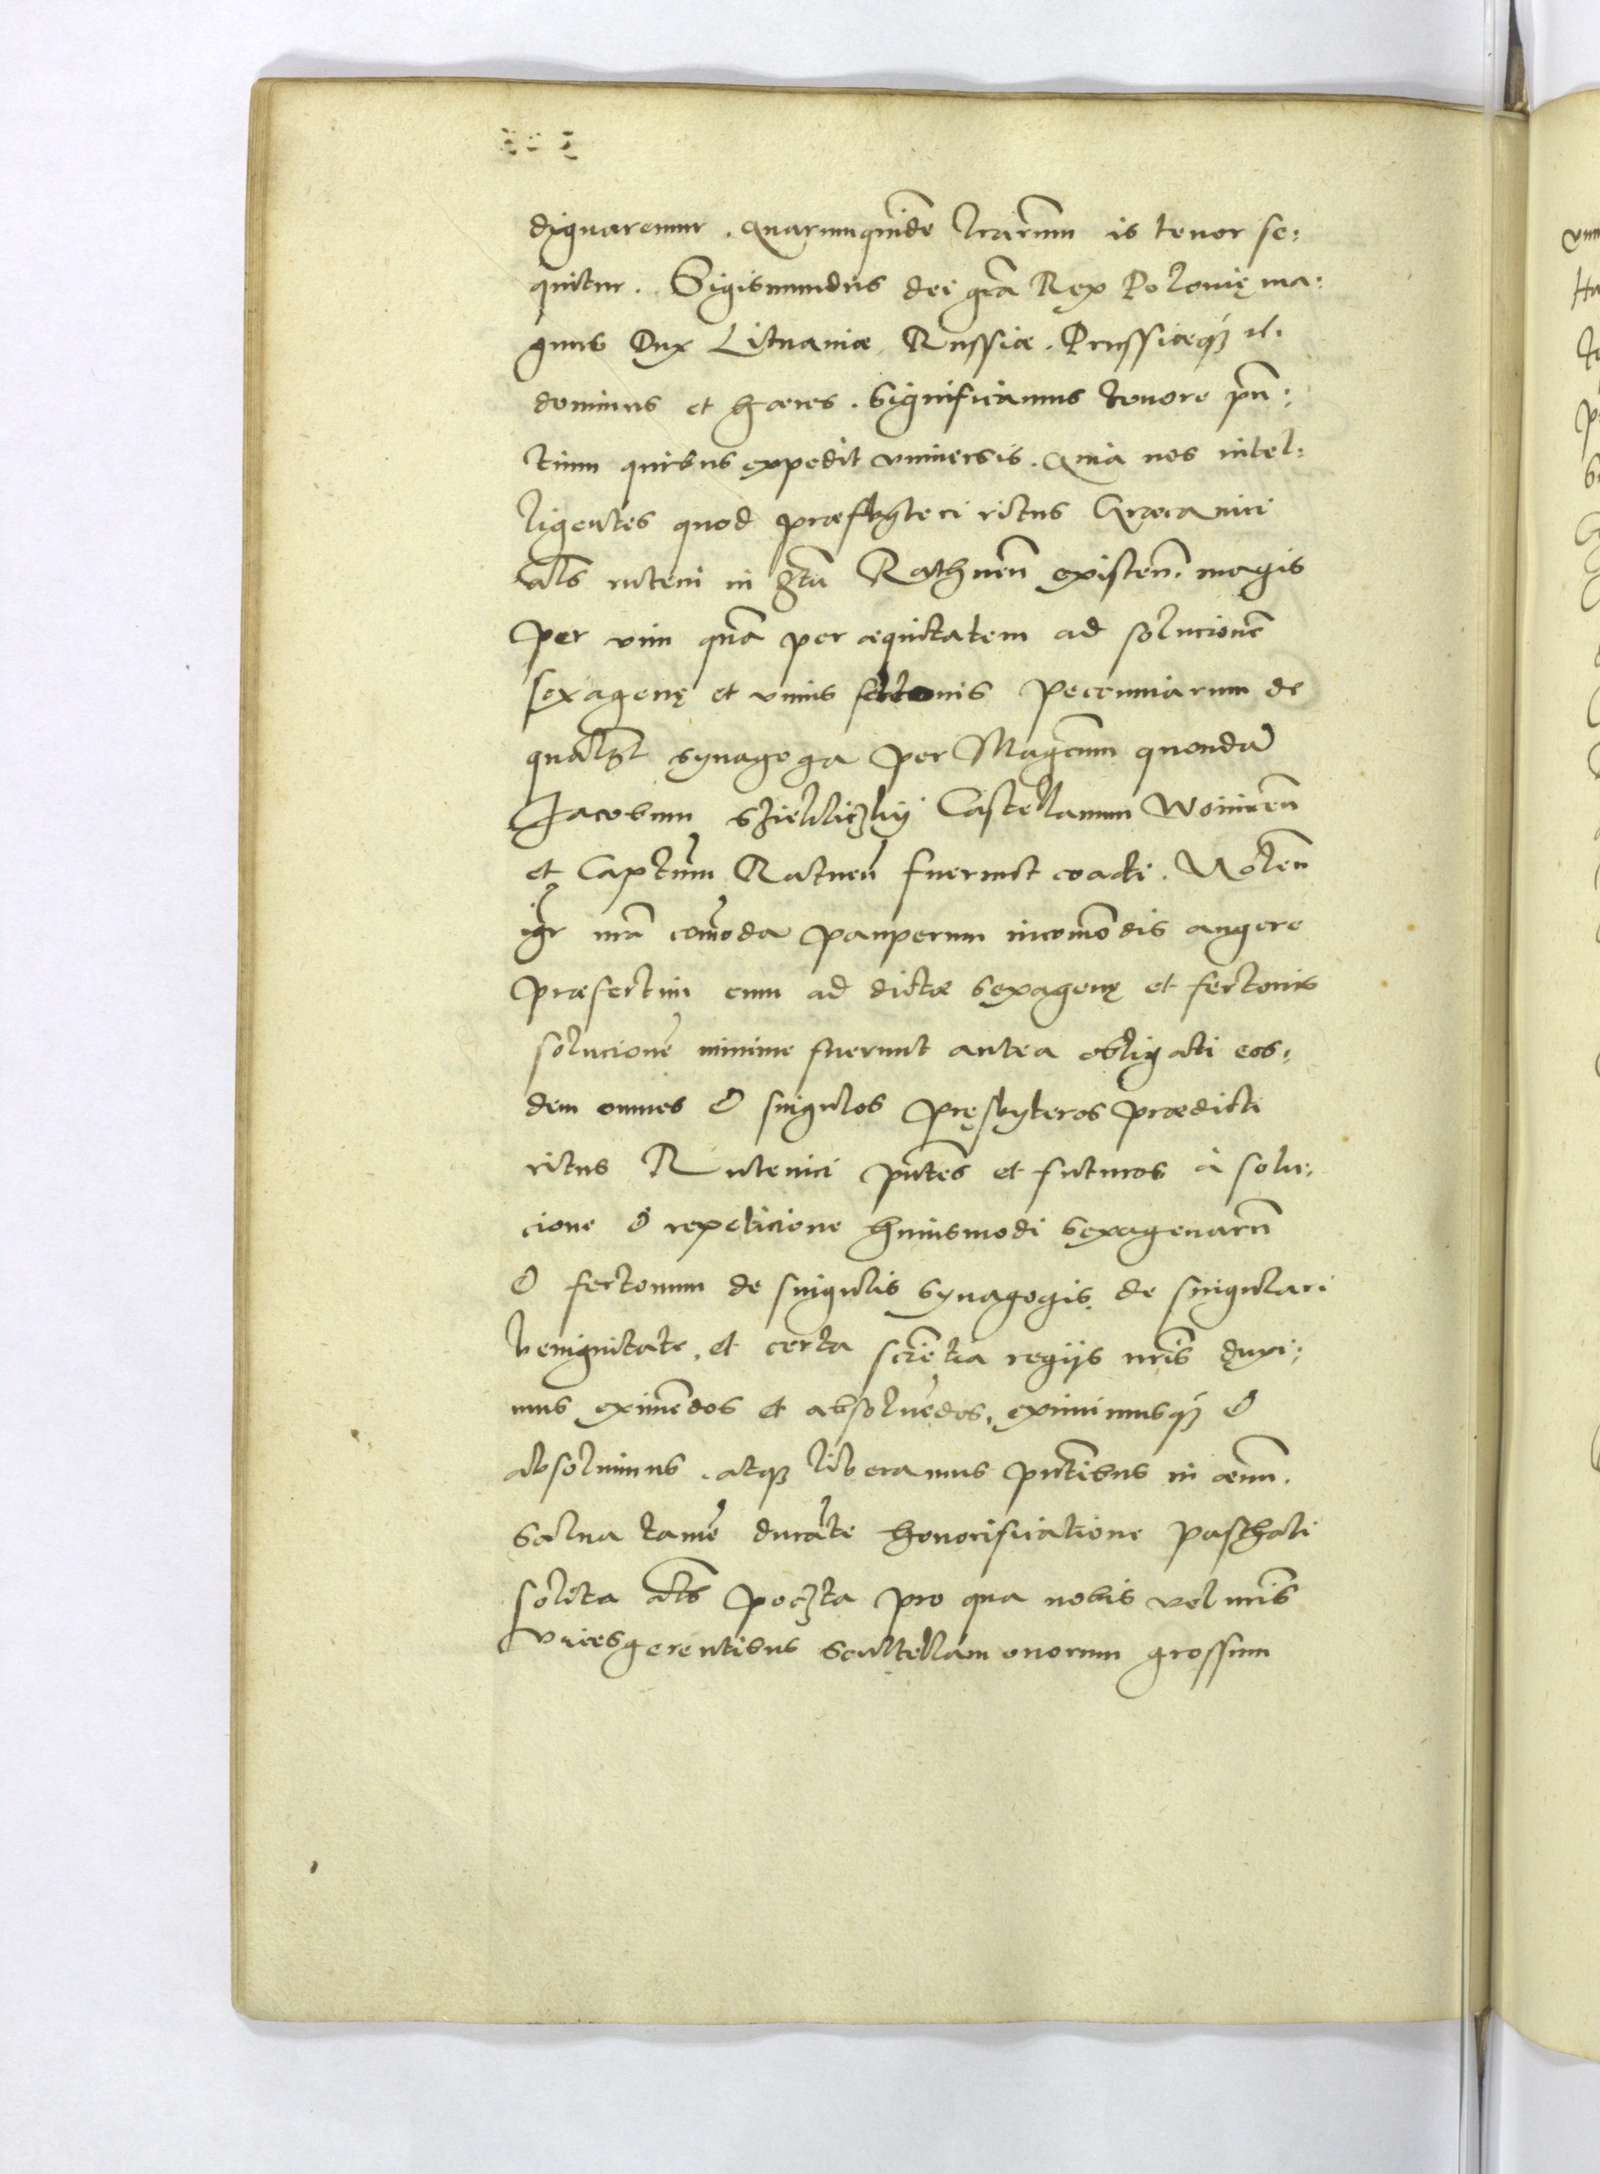 dignaremur. quarumquidē lrārum is tenor se:
quitur. Sigismundus dei grā Rex Polonię ma:
gnus Dux Lituaniæ Russiæ. Prussiæq₃ et.
dominus et hæres. Significamus tenore pn̄:
tium quibus expedit vniuersis. Quia nos intel:
ligentes quod præsbyteri ritus Græcanici
als̄ ruteni in Rathnen̄ existen̄. magis
per vim quā per æquitatem ad solucionē
sexagenę et vnius fertonis peccuniarum de
qualꝫt synagoga per Magcum quondā
Jacobum Castellanum Woinicen̄
et Captm̄ Ratnen̄ fuerunt coacti. Nolen̄
igr̄ nrā com̄oda pauperum incom̄odis augere
præsertim cum ad dictæ sexagenę et fertonis
solucionē minime fuerunt antea obligati eos:
dem omnes & singulos pręsbyteros prædicti
ritus Rutenici pn̄tes et futuros à solu:
cione & repeticione huiusmodi sexagenarū
& fertonum de singulis synagogis, de singulari
benignitate, et certa sciētia regijs nr̄is duxi:
mus eximēdos et absoluēdos, eximimusq₃ &
absoluimus, atq₃ liberamus pn̄tibus in æuum.
Salua tamē durāte honorificatione paschali
solita als̄ poczta pro qua nobis vel nr̄is
vicesgerentibus scultellam ouorum grossum